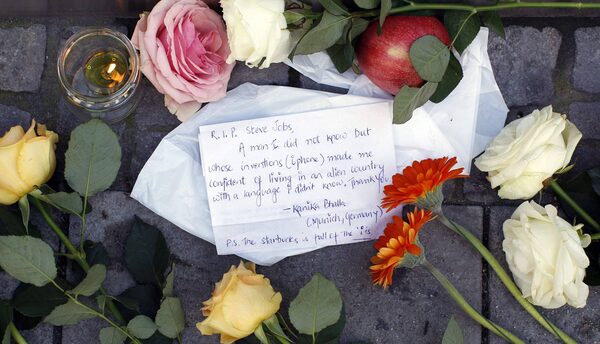 R.I.P. Steve Jobs,
A man I did not know but
whose inventions (iphone) made me
confident of living in an alien country
with a language I didn't know. Thank you
- Kanika Bhalla
(Munich, Germany)
P.S. The starbucks is full of the 'i's